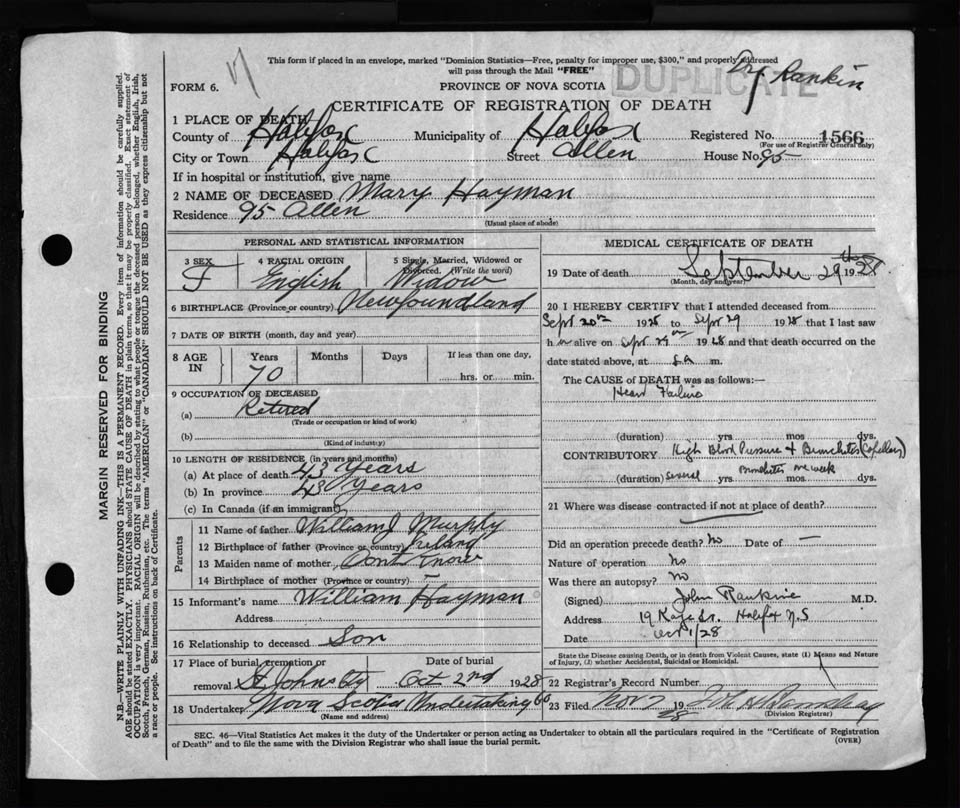 This form if placed in an envelope, marked "Dominion Statistics—Free, penalty for improper use, $300," and properly addressed
will pass through the Mail "FREE"
DUPLICATE
Dr. Rankin
FORM 6.
PROVINCE OF NOVA SCOTIA
CERTIFICATE OF REGISTRATION OF DEATH
1 PLACE OF DEATH
County of Halifax Municipality of Halifax Registered No. 1566
(For use of Registrar General only)
City or Town Halifax Street Allen House No. 95
If in hospital or institution, give name
2 NAME OF DECEASED Mary Hayman
Residence 95 Allen
(Usual place of abode)
PERSONAL AND STATISTICAL INFORMATION
3 SEX F
4 RACIAL ORIGIN English
5 Single, Married, Widowed or Divorced. (Write the word) Widow
6 BIRTHPLACE (Province or country) Newfoundland
7 DATE OF BIRTH (month, day and year)
8 AGE IN Years 70 Months Days If less than one day, hrs. or min.
9 OCCUPATION OF DECEASED
(a) Retired
(Trade or occupation or kind of work)
(b)
(Kind of industry)
10 LENGTH OF RESIDENCE (in years and months)
(a) At place of death 43 Years
(b) In province 43 Years
(c) In Canada (if an immigrant)
Parents
11 Name of father William J Murphy
12 Birthplace of father (Province or country) Ireland
13 Maiden name of mother Dont Know
14 Birthplace of mother (Province or country) —
15 Informant's name William Hayman
Address
16 Relationship to deceased Son
17 Place of burial, cremation or removal St. Johns Cty Date of burial Oct 2nd 1928
18 Undertaker Nova Scotia Undertaking Co
(Name and address)
MEDICAL CERTIFICATE OF DEATH
19 Date of death September 29th 1928
(Month, day and year)
20 I HEREBY CERTIFY that I attended deceased from
Sept 20th 1928 to Sept 29 1928 that I last saw
h er alive on Sept 29th 1928 and that death occurred on the
date stated above, at m.
The CAUSE of DEATH was as follows:—
Heart Failure
(duration) yrs. mos. dys.
CONTRIBUTORY High Blood Pressure & Bronchitis (Capillary)
Bronchitis one week
(duration) several yrs. mos. dys.
21 Where was disease contracted if not at place of death?
Did an operation precede death? No Date of —
Nature of operation No
Was there an autopsy? No
(Signed) John Rankine M.D.
Address 19 St. Halifax N.S
Date Oct 1/28
State the Disease causing Death, or in death from Violent Causes, state (1) Means and Nature
of Injury, (2) whether Accidental, Suicidal or Homicidal.
22 Registrar's Record Number
23 Filed Nov 7 1928
(Division Registrar)
SEC. 46—Vital Statistics Act makes it the duty of the Undertaker or person acting as Undertaker to obtain all the particulars required in the "Certificate of Registration
of Death" and to file the same with the Division Registrar who shall issue the burial permit.
(OVER)
MARGIN RESERVED FOR BINDING
N.B.—WRITE PLAINLY WITH UNFADING INK—THIS IS A PERMANENT RECORD. Every item of information should be carefully supplied.
AGE should be stated EXACTLY. PHYSICIANS should STATE CAUSE OF DEATH in plain terms, so that it may be properly classified. Exact statement of
OCCUPATION is very important. RACIAL ORIGIN will be described by stating to what people or tongue the deceased person belonged, whether English, Irish,
Scotch, French, German, Russian, Ruthenian, etc. The terms "AMERICAN" or "CANADIAN" SHOULD NOT BE USED as they express citizenship but not
a race or people. See instructions on back of Certificate.